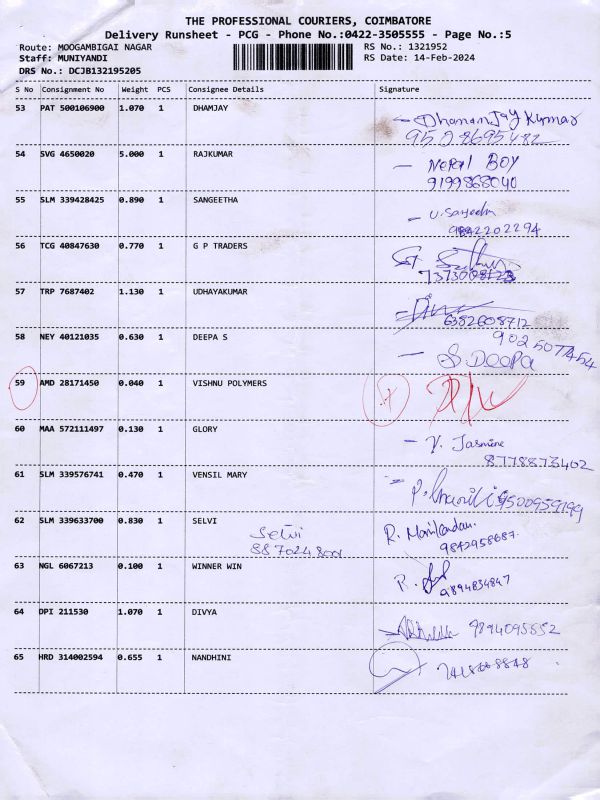 THE PROFESSIONAL COURIERS, COIMBATORE
Delivery Runsheet - PCG - Phone No.:0422-3505555 - Page No.:5
Route: MOOGAMBIGAI NAGAR RS No.: 1321952
Staff: MUNIYANDI RS Date: 14-Feb-2024
DRS No.: DCJB132195205
S No Consignment No Weight PCS Consignee Details Signature
53 PAT 500106900 1.070 1 DHAMJAY
Dhananjay Kumar
9508695482
54 SVG 4650020 5.000 1 RAJKUMAR
Nepal BOY
9199868040
55 SLM 339428425 0.890 1 SANGEETHA
9842202294
56 TCG 40847630 0.770 1 G P TRADERS
7373008123
57 TRP 7687402 1.130 1 UDHAYAKUMAR
6382608712
58 NEY 40121035 0.630 1 DEEPA S
9025077454
S. DEEPA
59 AMD 28171450 0.040 1 VISHNU POLYMERS
60 MAA 572111497 0.130 1 GLORY
V. Jasmine
8778873402
61 SLM 339576741 0.470 1 VENSIL MARY
9500959199
62 SLM 339633700 0.830 1 SELVI
Selvi
R. Manikandan.
9842958687.
63 NGL 6067213 0.100 1 WINNER WIN
9894834847
64 DPI 211530 1.070 1 DIVYA
9894095552
65 HRD 314002594 0.655 1 NANDHINI